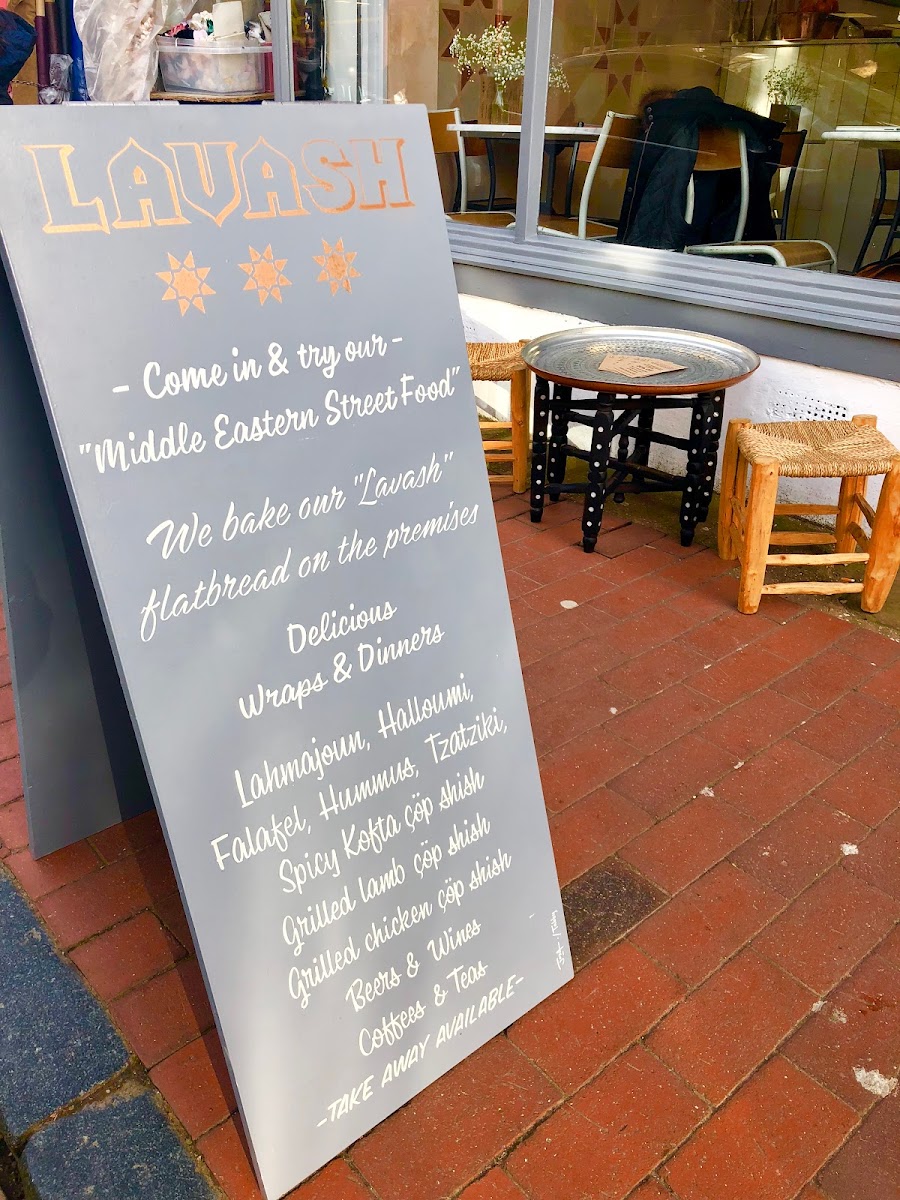 LAVASH
- Come in & try our -
"Middle Eastern Street Food"
We bake our "Lavash"
flatbread on the premises
Delicious
Wraps & Dinners
Lahmajoun, Halloumi,
Falafel, Hummus, Tzatziki,
Spicy Kofta çöp shish
Grilled lamb çöp shish
Grilled chicken çöp shish
Beers & Wines
Coffees & Teas
-TAKE AWAY AVAILABLE-